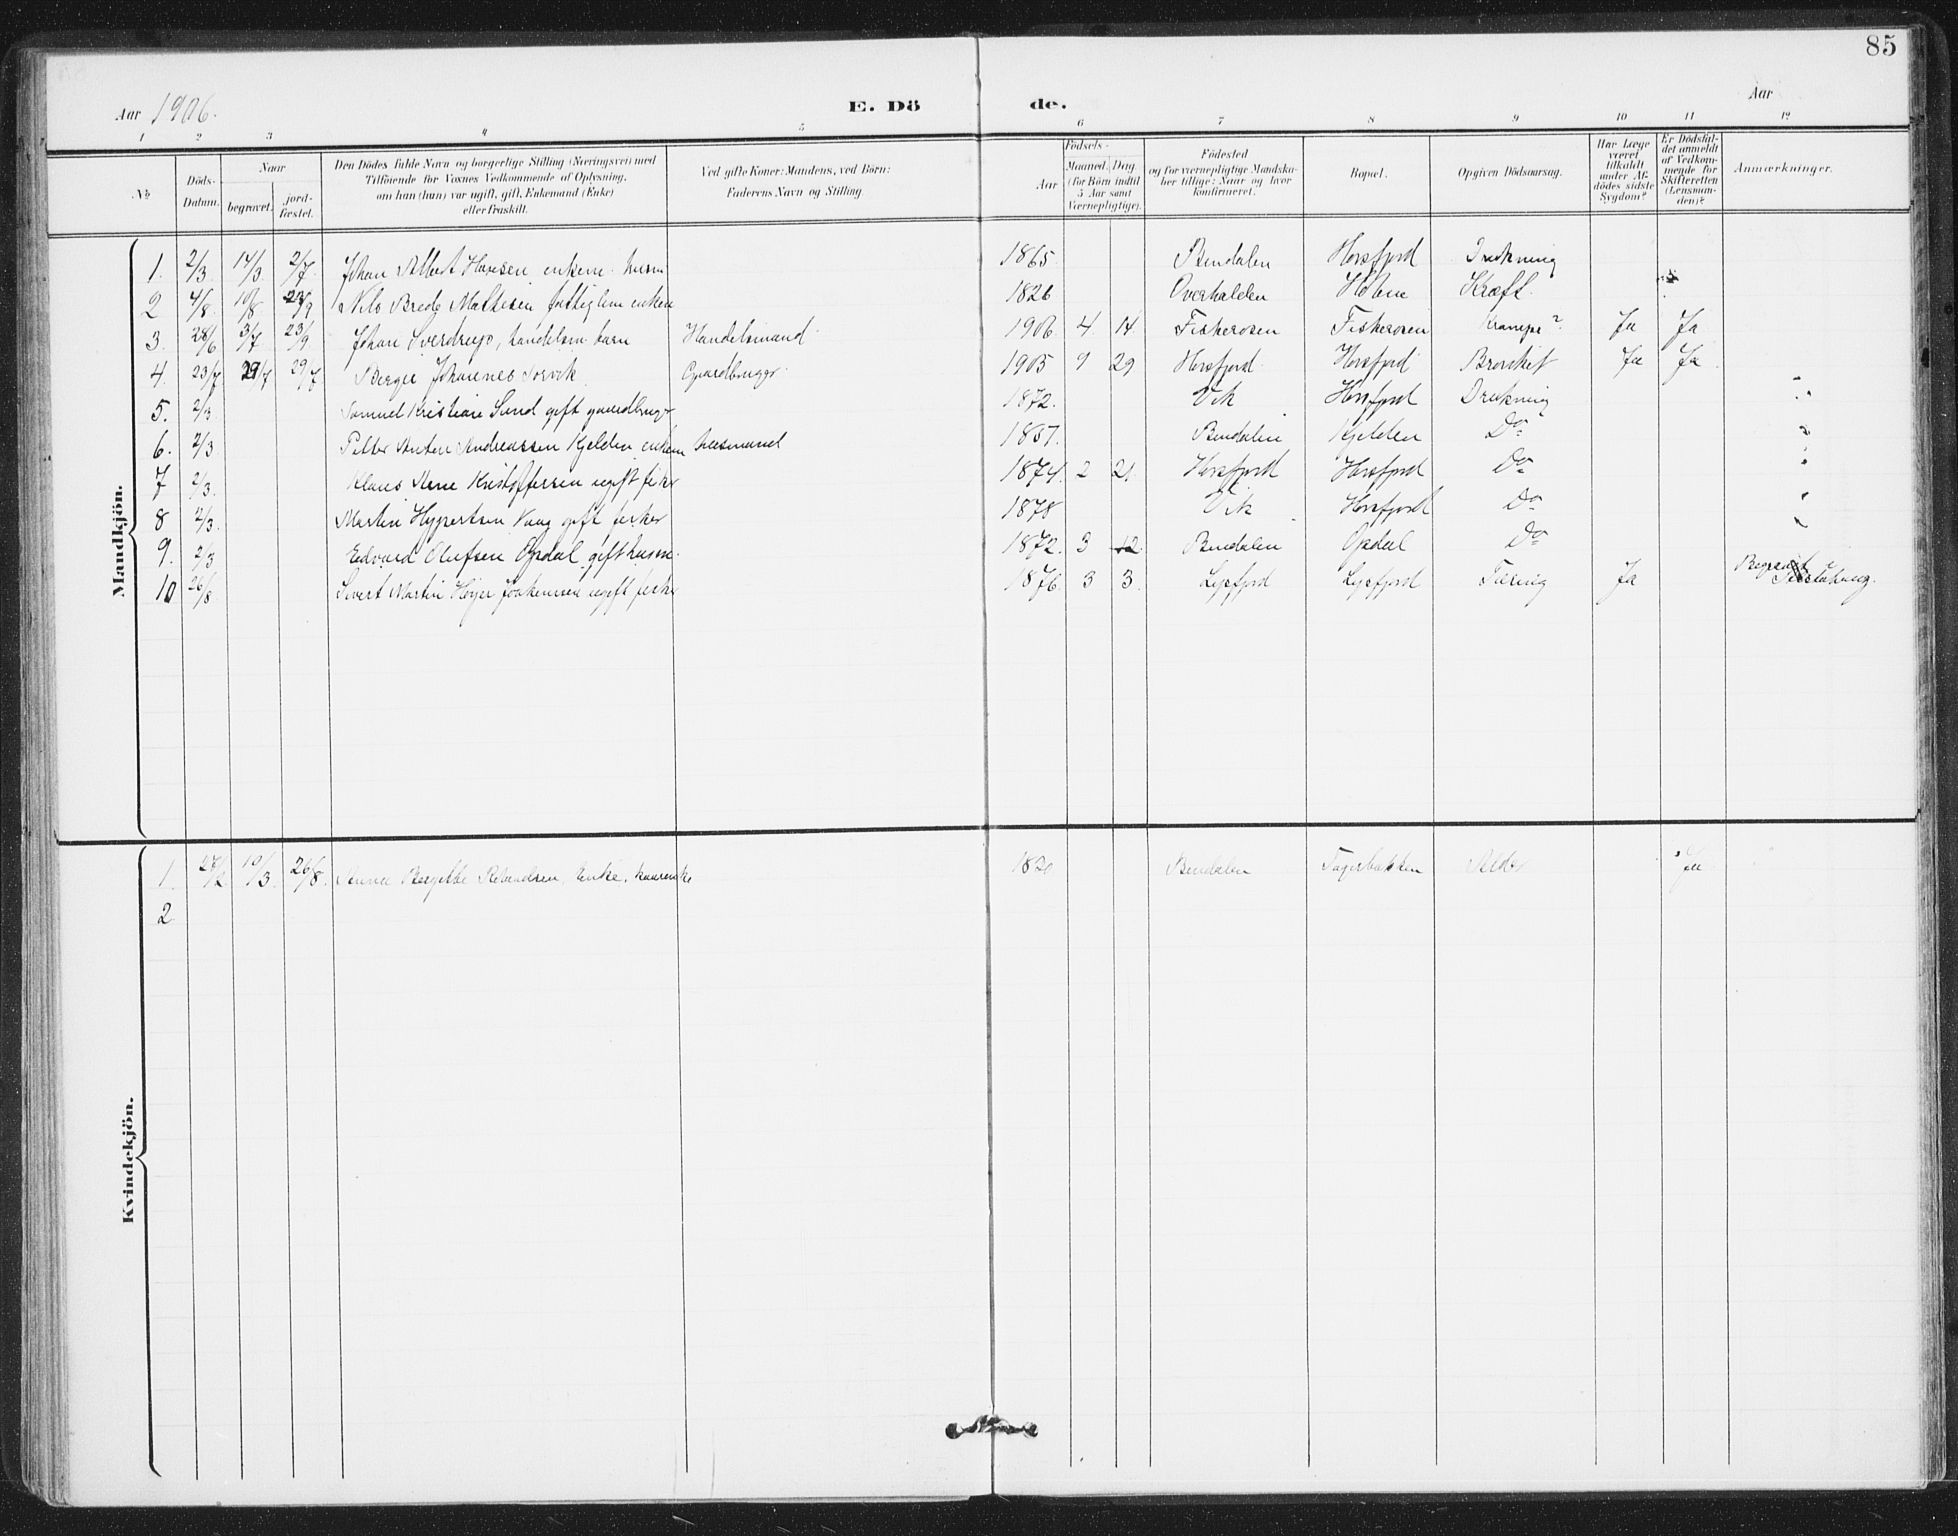 85
Aar 1906.
E. Dö de.
Aar
1 2 3 4 5 6 7 8 9 10 11 12
No
Döds-
Datum.
Naar
begravet.
jord-
fæstet.
Den Dödes fulde Navn og borgerlige Stilling (Næringsvei) med
Tilföiende for Voxnes Vedkommende af Oplysning,
om han (hun) var ugift, gift, Enkemand (Enke)
eller fraskilt.
Ved gifte Koner: Mandens, ved Börn:
Faderens Navn og Stilling.
Födsels-
Aar
Maaned. Dag.
(for Börn indtil
5 Aar samt
Værnepligtige).
Födested
og for værnepligtige Mandska-
ber tillige: Naar og hvor
konfirmeret.
Bopæl.
Opgiven Dödsaarsag.
Har Læge
været
tilkaldt
under Af-
dödes sidste
Sygdom?
Er Dödsfal-
det anmeldt
af Vedkom-
mende for
Skifteretten
(Lensman-
den)?
Anmærkninger.
Mandkjön.
1. 2/3 14/3 2/7 Johan Albert Hansen enkem. husm 1865 Bindalen Horsfjord Drukning
2 4/8 10/8 23/9 Nils Brede Mathisen fattiglem enkem 1826 Overhalden Kræft
3. 28/6 3/7 23/9 Johan Sverdrup, handelsm. barn Handelsmand 1906 4 14 Fiskerosen Fiskerosen Krampe? Ja Ja
4. 23/7 29/7 29/7 Berger Johannes Gaardbruger 1905 9 29 Horsfjord Horsfjord Ja Ja
5. 2/3 Samuel Kristian Sund gift gaardbruger 1872. Vik Horsfjord Drukning "
6. 2/3 Petter Anton Andreassen Kjelden enkem husmand 1857. Bindalen Kjelden Do "
7 2/3. Klaus Arne Kristoffersen ugift fisker 1874. 2 21 Horsfjord Horsfjord Do "
8 2/3. Martin Hypertsen Vaag gift fisker 1878 Vik Horsfjord Do "
9. 2/3 Edvard Olufsen Opdal gift husm. 1872. 3 12 Bindalen Opdal Do "
10 26/8 Sivert Martin Høyer Joakimsen ugift fisker 1876. 3 3. Lysfjord Lysfjord Tæring Ja Begravet
Kvindekjön.
1. 27/2 10/3 26/8. Anna Bergitte Rolandsen, Enke, kaarenke 1820 Bindalen Fagerbakken Alder Ja
2.